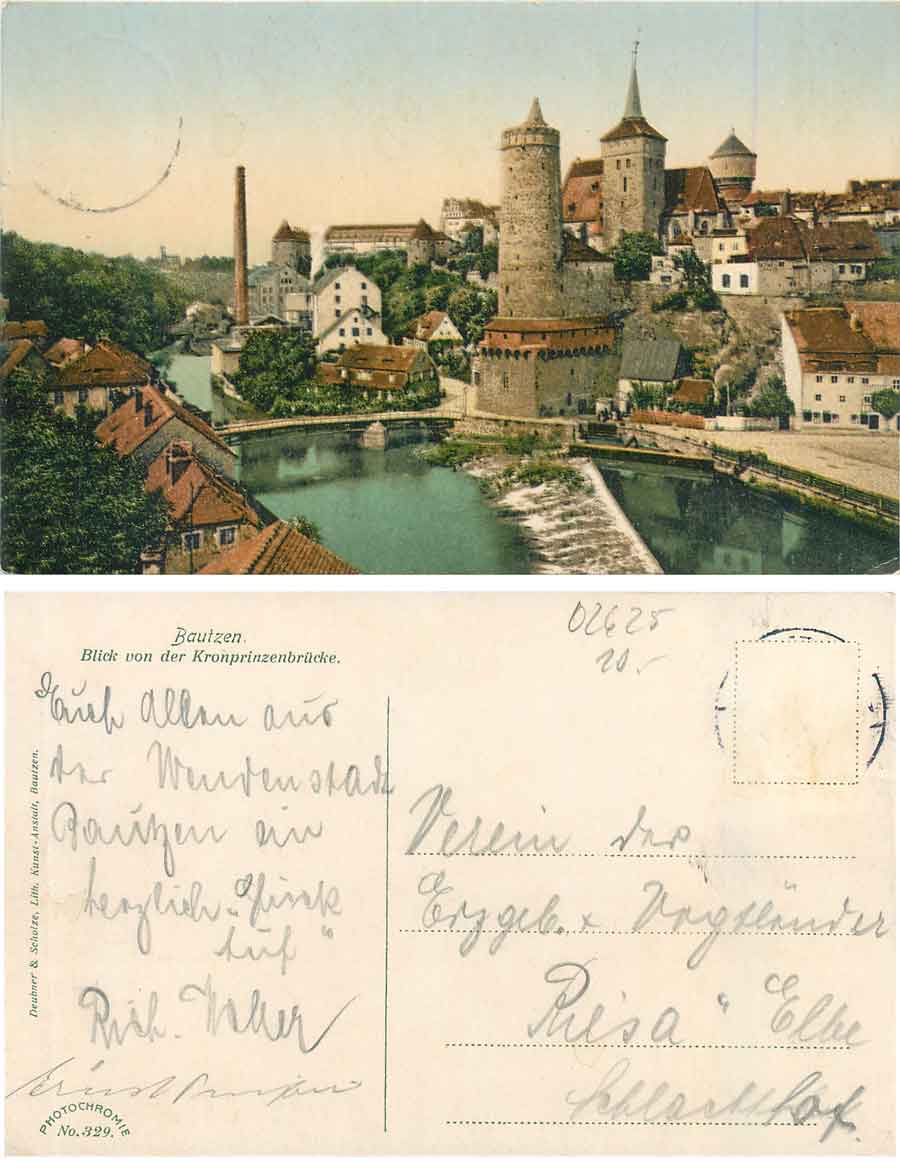 Bautzen.
Blick von der Kronprinzenbrücke.
02625
20.-
Euch Allen aus
der Wendenstadt
Bautzen ein
herzlich „Glück
Auf"
Rich.
Deubner & Scholze, Lith. Kunst-Anstalt, Bautzen.
PHOTOCHROMIE
No. 329.
Verein der
Erzgeb. & Vogtländer
Riesa " Elbe
Schlachthof.